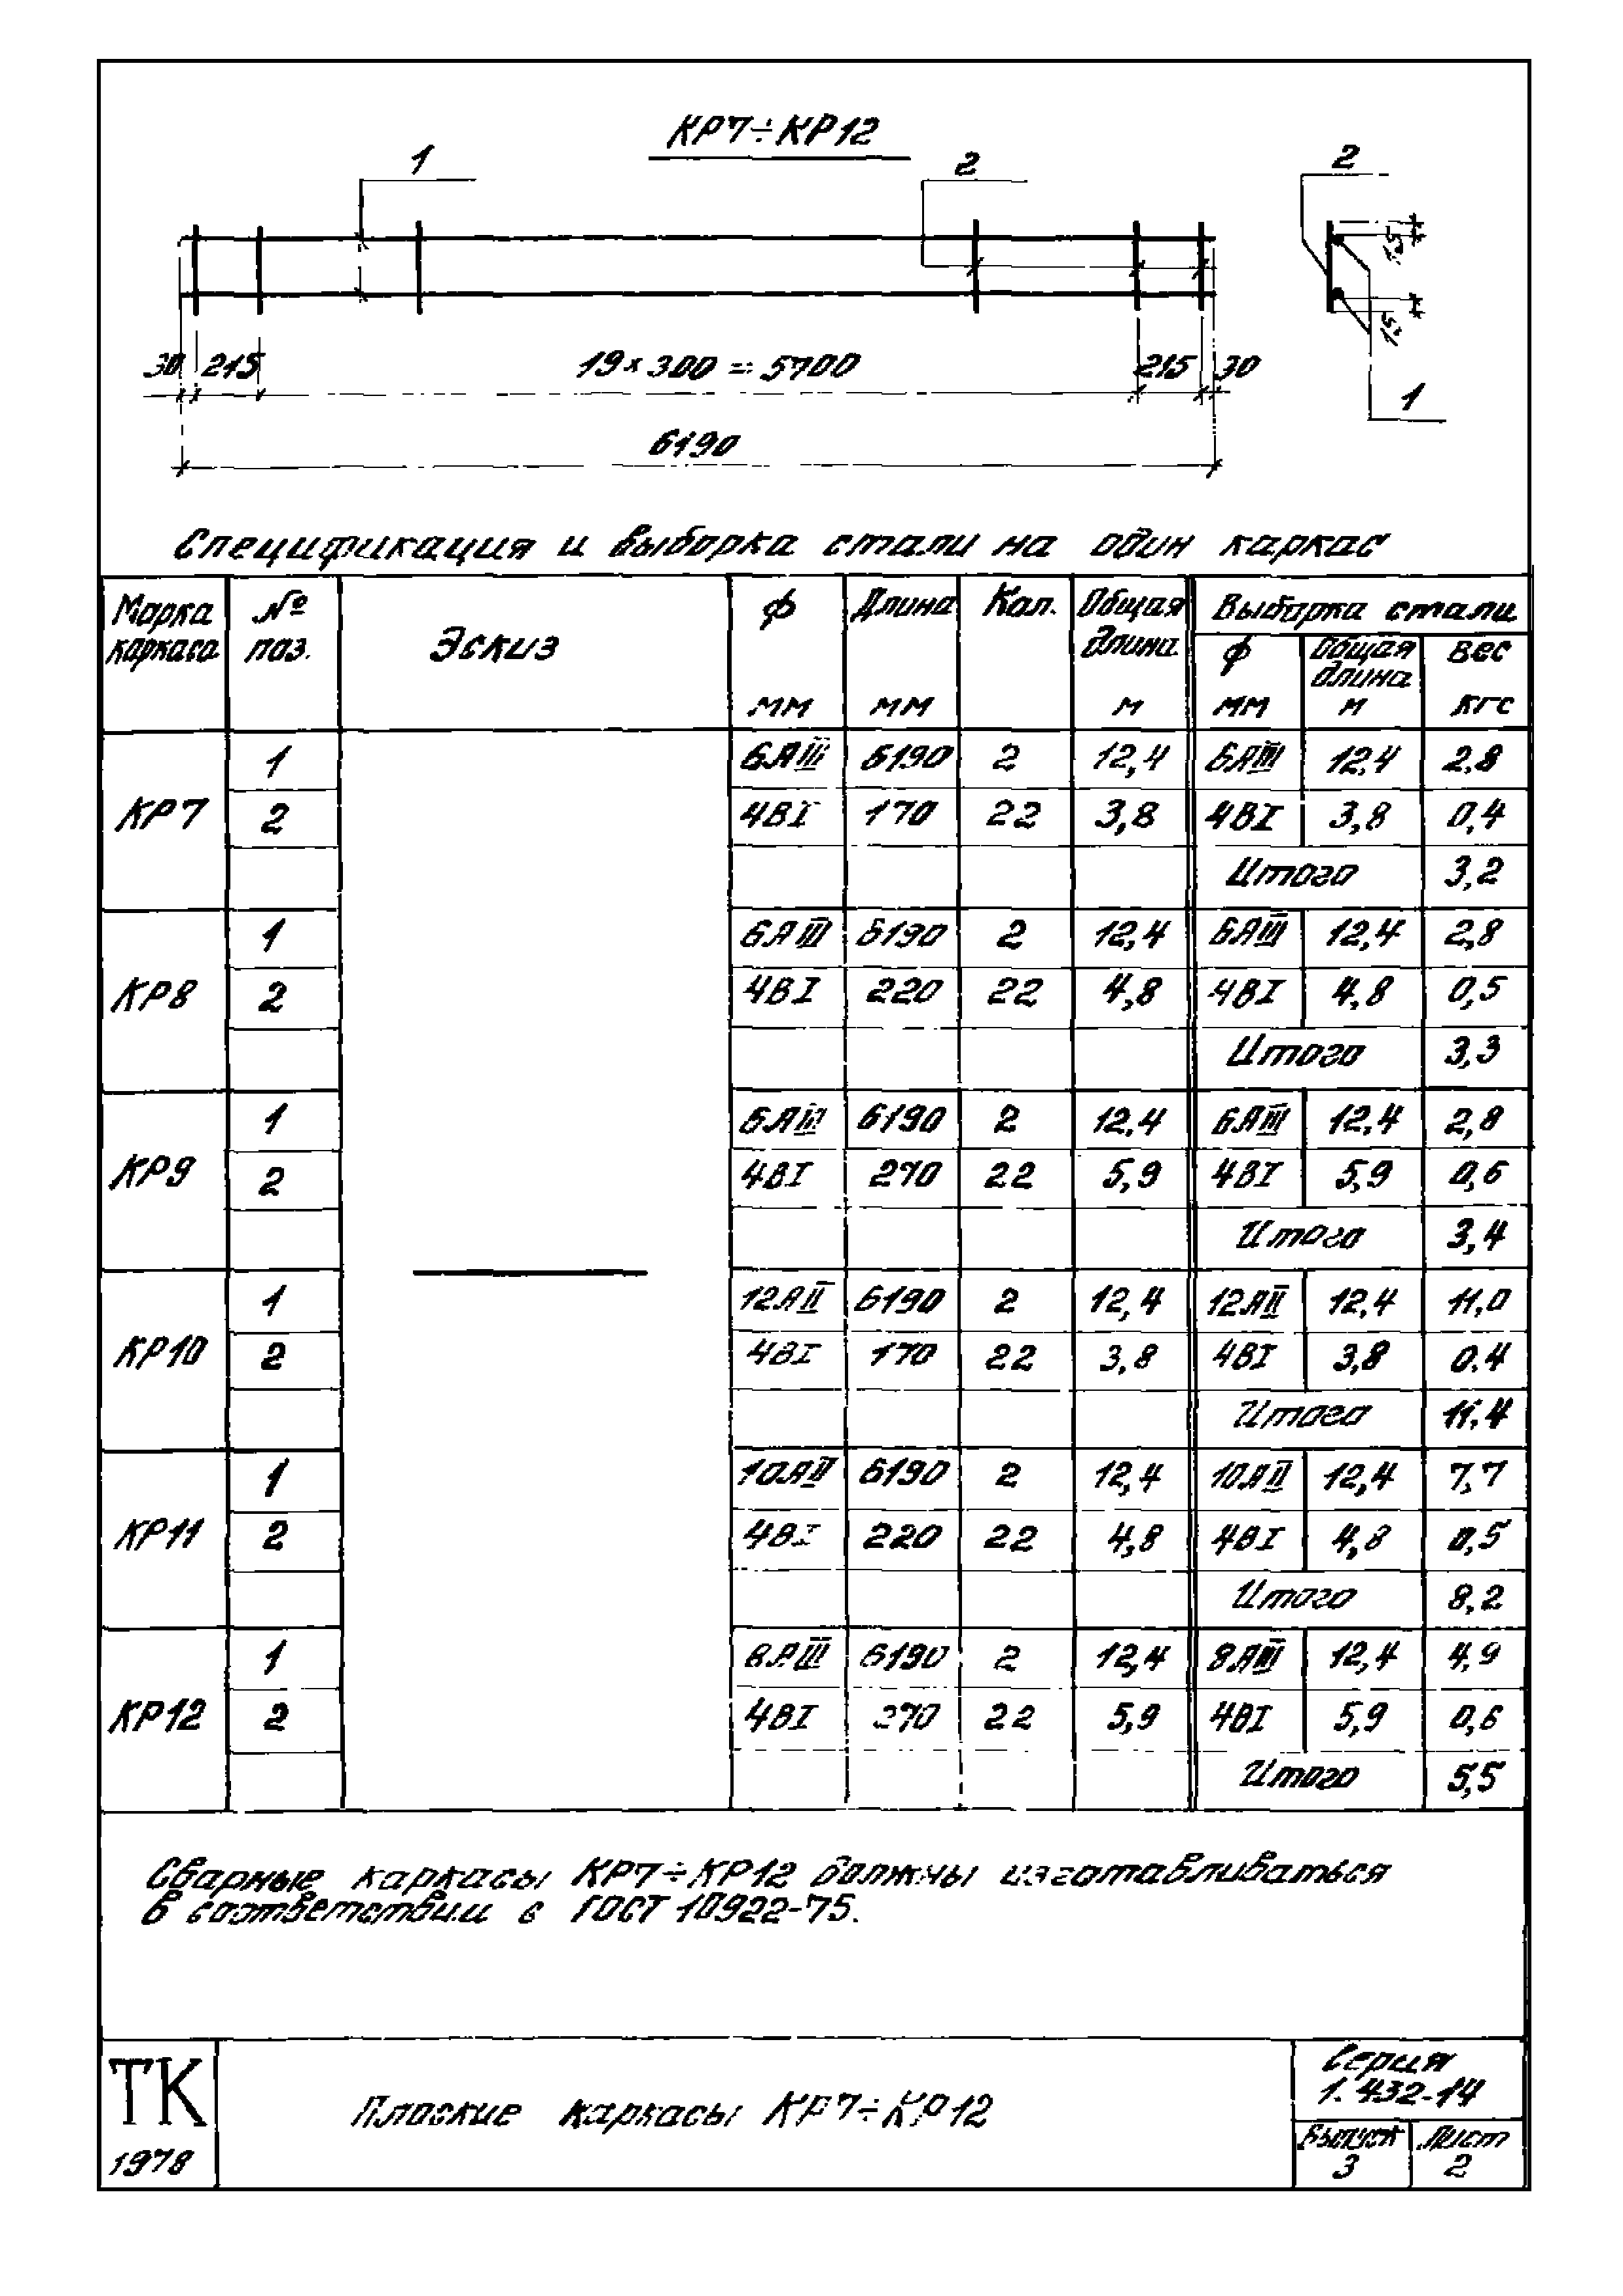 КР7÷КР12
1
2
2
15
15
30 215 19×300=5700 215 30
1
6190
Спецификация и выборка стали на один каркас
Марка каркаса № поз. Эскиз ф мм Длина мм Кол. Общая длина м Выборка стали
ф мм Общая длина м вес кгс
КР7 1 6АIII 6190 2 12,4 6АIII 12,4 2,8
2 4ВI 170 22 3,8 4ВI 3,8 0,4
Итого 3,2
КР8 1 6АIII 6190 2 12,4 6АIII 12,4 2,8
2 4ВI 220 22 4,8 4ВI 4,8 0,5
Итого 3,3
КР9 1 6АIII 6190 2 12,4 6АIII 12,4 2,8
2 4ВI 270 22 5,9 4ВI 5,9 0,6
Итого 3,4
КР10 1 12АII 6190 2 12,4 12АII 12,4 11,0
2 4ВI 170 22 3,8 4ВI 3,8 0,4
Итого 11,4
КР11 1 10АII 6190 2 12,4 10АII 12,4 7,7
2 4ВI 220 22 4,8 4ВI 4,8 0,5
Итого 8,2
КР12 1 8АIII 6190 2 12,4 8АIII 12,4 4,9
2 4ВI 270 22 5,9 4ВI 5,9 0,6
Итого 5,5
Сварные каркасы КР7÷КР12 должны изготавливаться
в соответствии с ГОСТ 10922-75.
ТК
1978
Плоские каркасы КР7÷КР12
Серия
1.432-14
Выпуск Лист
3 2